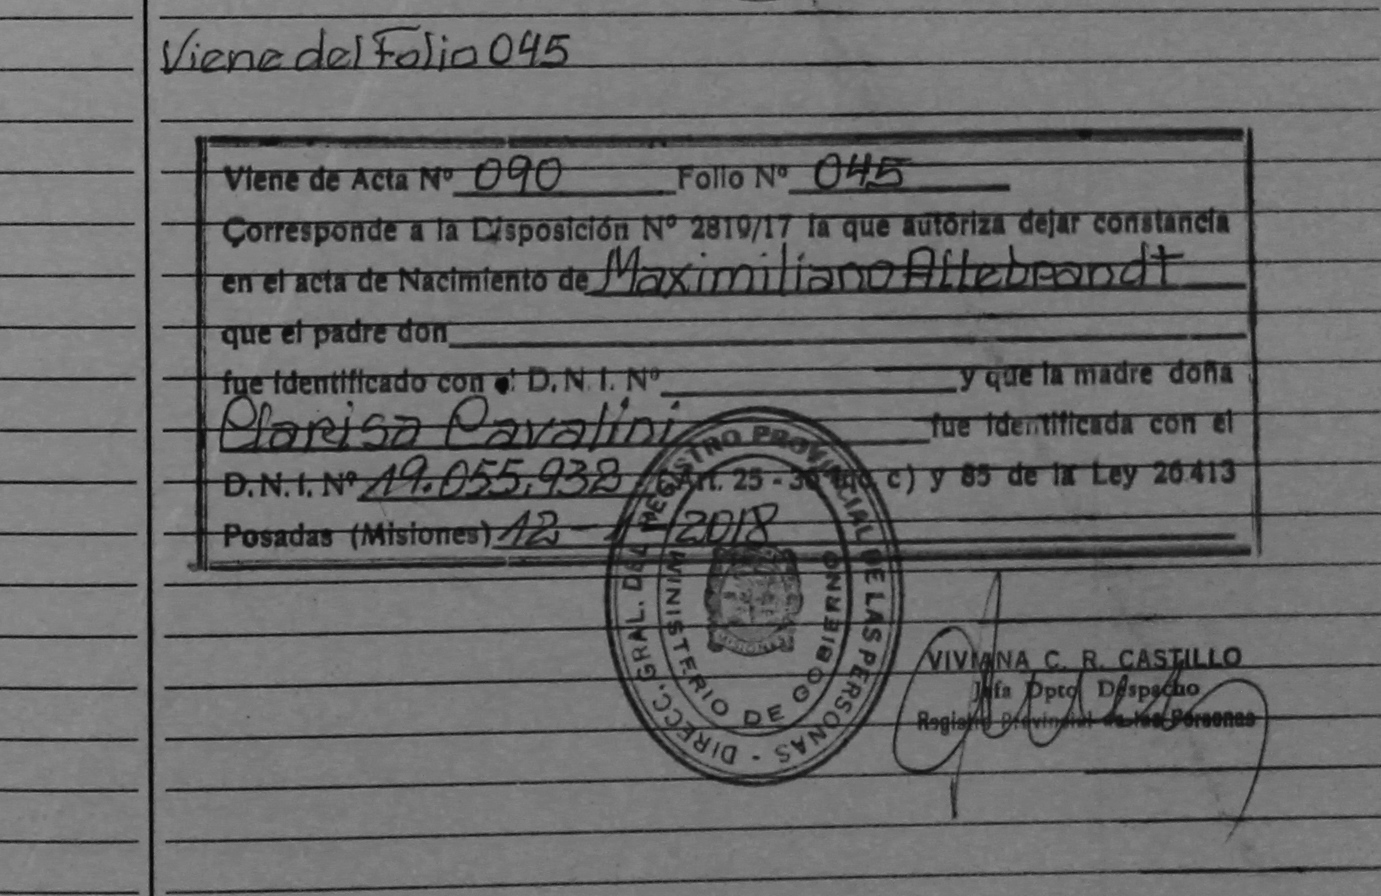 Viene del Folio 045
Viene de Acta Nº 090 Folio Nº 045
Corresponde a la Disposición Nº 2819/17 la que autoriza dejar constancia
en el acta de Nacimiento de Maximiliano Altebrandt
que el padre don
fue identificado con el D.N.I. Nº y que la madre doña
Clarisa Cavalini fue identificada con el
D.N.I. Nº 19.055.938 Art. 25 - c) y 85 de la Ley 26.413
Posadas (Misiones) 12 - - 2018
DIRECC. GRAL. DEL REGISTRO PROVINCIAL DE LAS PERSONAS -
MINISTERIO DE GOBIERNO
MISIONES
VIVIANA C. R. CASTILLO
Jefa Dpto Despacho
Registro Provincial de las Personas